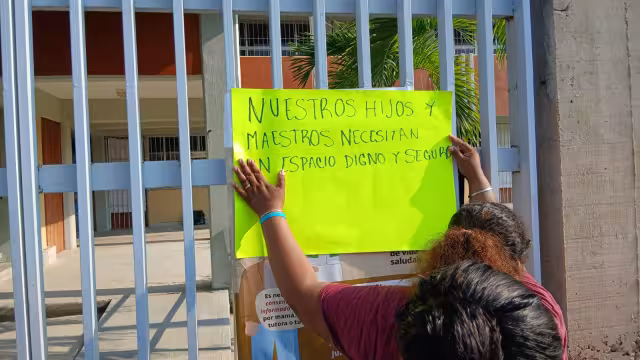 NUESTROS HIJOS Y
MAESTROS NECESITAN
UN ESPACIO DIGNO Y SEGURO
de vida
saludab
Es ne
conse
informado
por mamá
tutora o tu